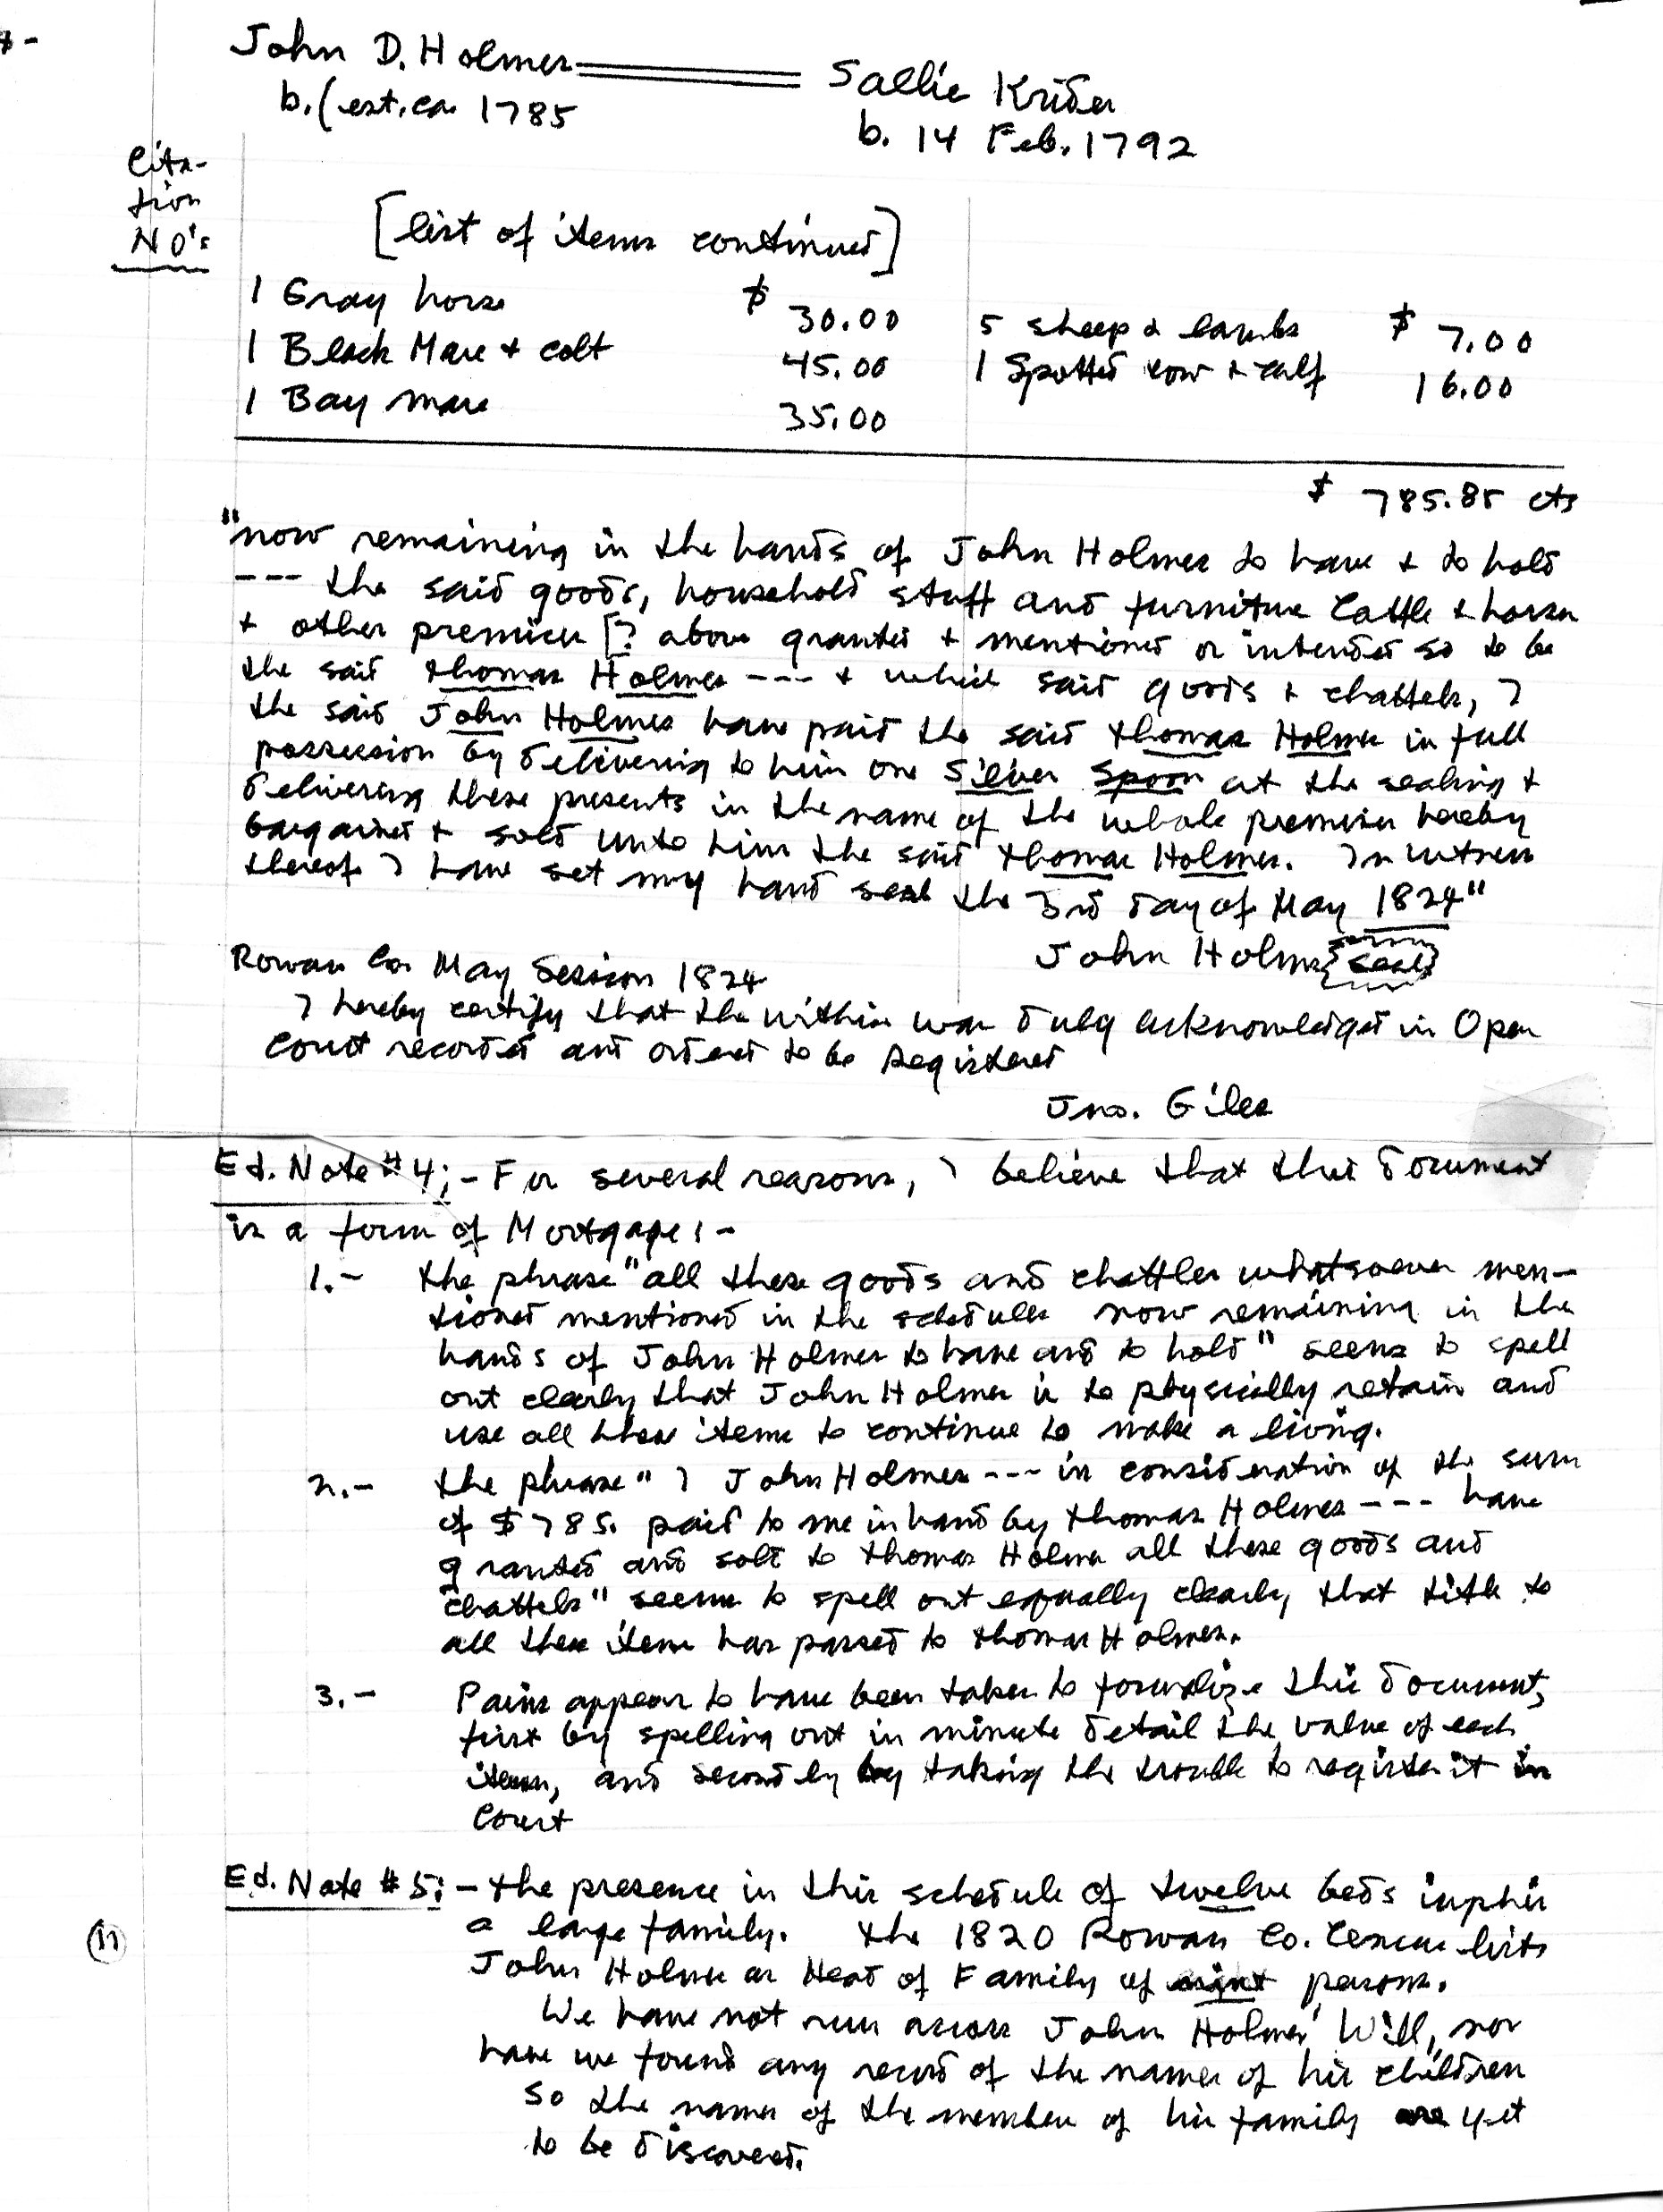 John D. Holmes ═══ Sallie Krider
b. (est. ca 1785
b. 14 Feb. 1792
Cita-
tion
NO's
[list of items continued]
1 Gray horse $ 30.00 5 sheep & lambs $ 7.00
1 Black Mare + colt 45.00 1 Spotted cow + calf 16.00
1 Bay mare 35.00
$ 785.85 cts
"now remaining in the hands of John Holmes to have + to hold
--- the said goods, household stuff and furniture Cattle + horses
+ other premises [? above granted + mentioned or intended so to be
the said Thomas Holmes --- + which said goods + chattels, I
the said John Holmes have paid the said Thomas Holmes in full
possession by delivering to him one Silver Spoon at the sealing +
delivering these presents in the name of the whole premises hereby
bargained + sold unto him the said Thomas Holmes. In witness
thereof I have set my hand seal the 3rd day of May 1824"
John Holmes {seal}
Rowan Co. May Session 1824
I hereby certify that the within was duly acknowledged in Open
Court recorded and ordered to be Registered
Jno. Giles
Ed. Note #4; - For several reasons, I believe that this document
is a form of Mortgage: -
1.- The phrase "all these goods and chattles whatsoever men-
tioned mentioned in the schedule now remaining in the
hands of John Holmes to have and to hold" seems to spell
out clearly that John Holmes is to physically retain and
use all these items to continue to make a living.
2.- The phrase " I John Holmes --- in consideration of the sum
of $785. paid to me in hand by Thomas Holmes --- have
granted and sold to Thomas Holmes all these goods and
chattels" seems to spell out equally clearly, that title to
all these items has passed to Thomas Holmes.
3.- Pains appear to have been taken to formalize this document,
first by spelling out in minute detail the value of each
item, and secondly by taking the trouble to register it in
Court
Ed. Note #5: - The presence in this schedule of twelve beds implies
a large family. The 1820 Rowan Co. Census lists
(17)
John Holmes as Head of Family of nine persons.
We have not run across John Holmes' Will, nor
have we found any record of the names of his children
So the names of the members of his family are yet
to be discovered.